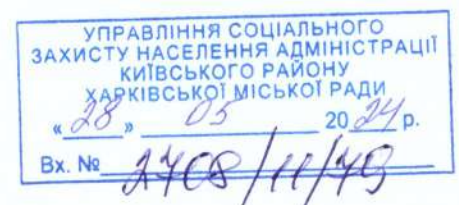 УПРАВЛІННЯ СОЦІАЛЬНОГО
ЗАХИСТУ НАСЕЛЕННЯ АДМІНІСТРАЦІЇ
КИЇВСЬКОГО РАЙОНУ
ХАРКІВСЬКОЇ МІСЬКОЇ РАДИ
«28» 05 2024 р.
Вх. № 2708/11/79